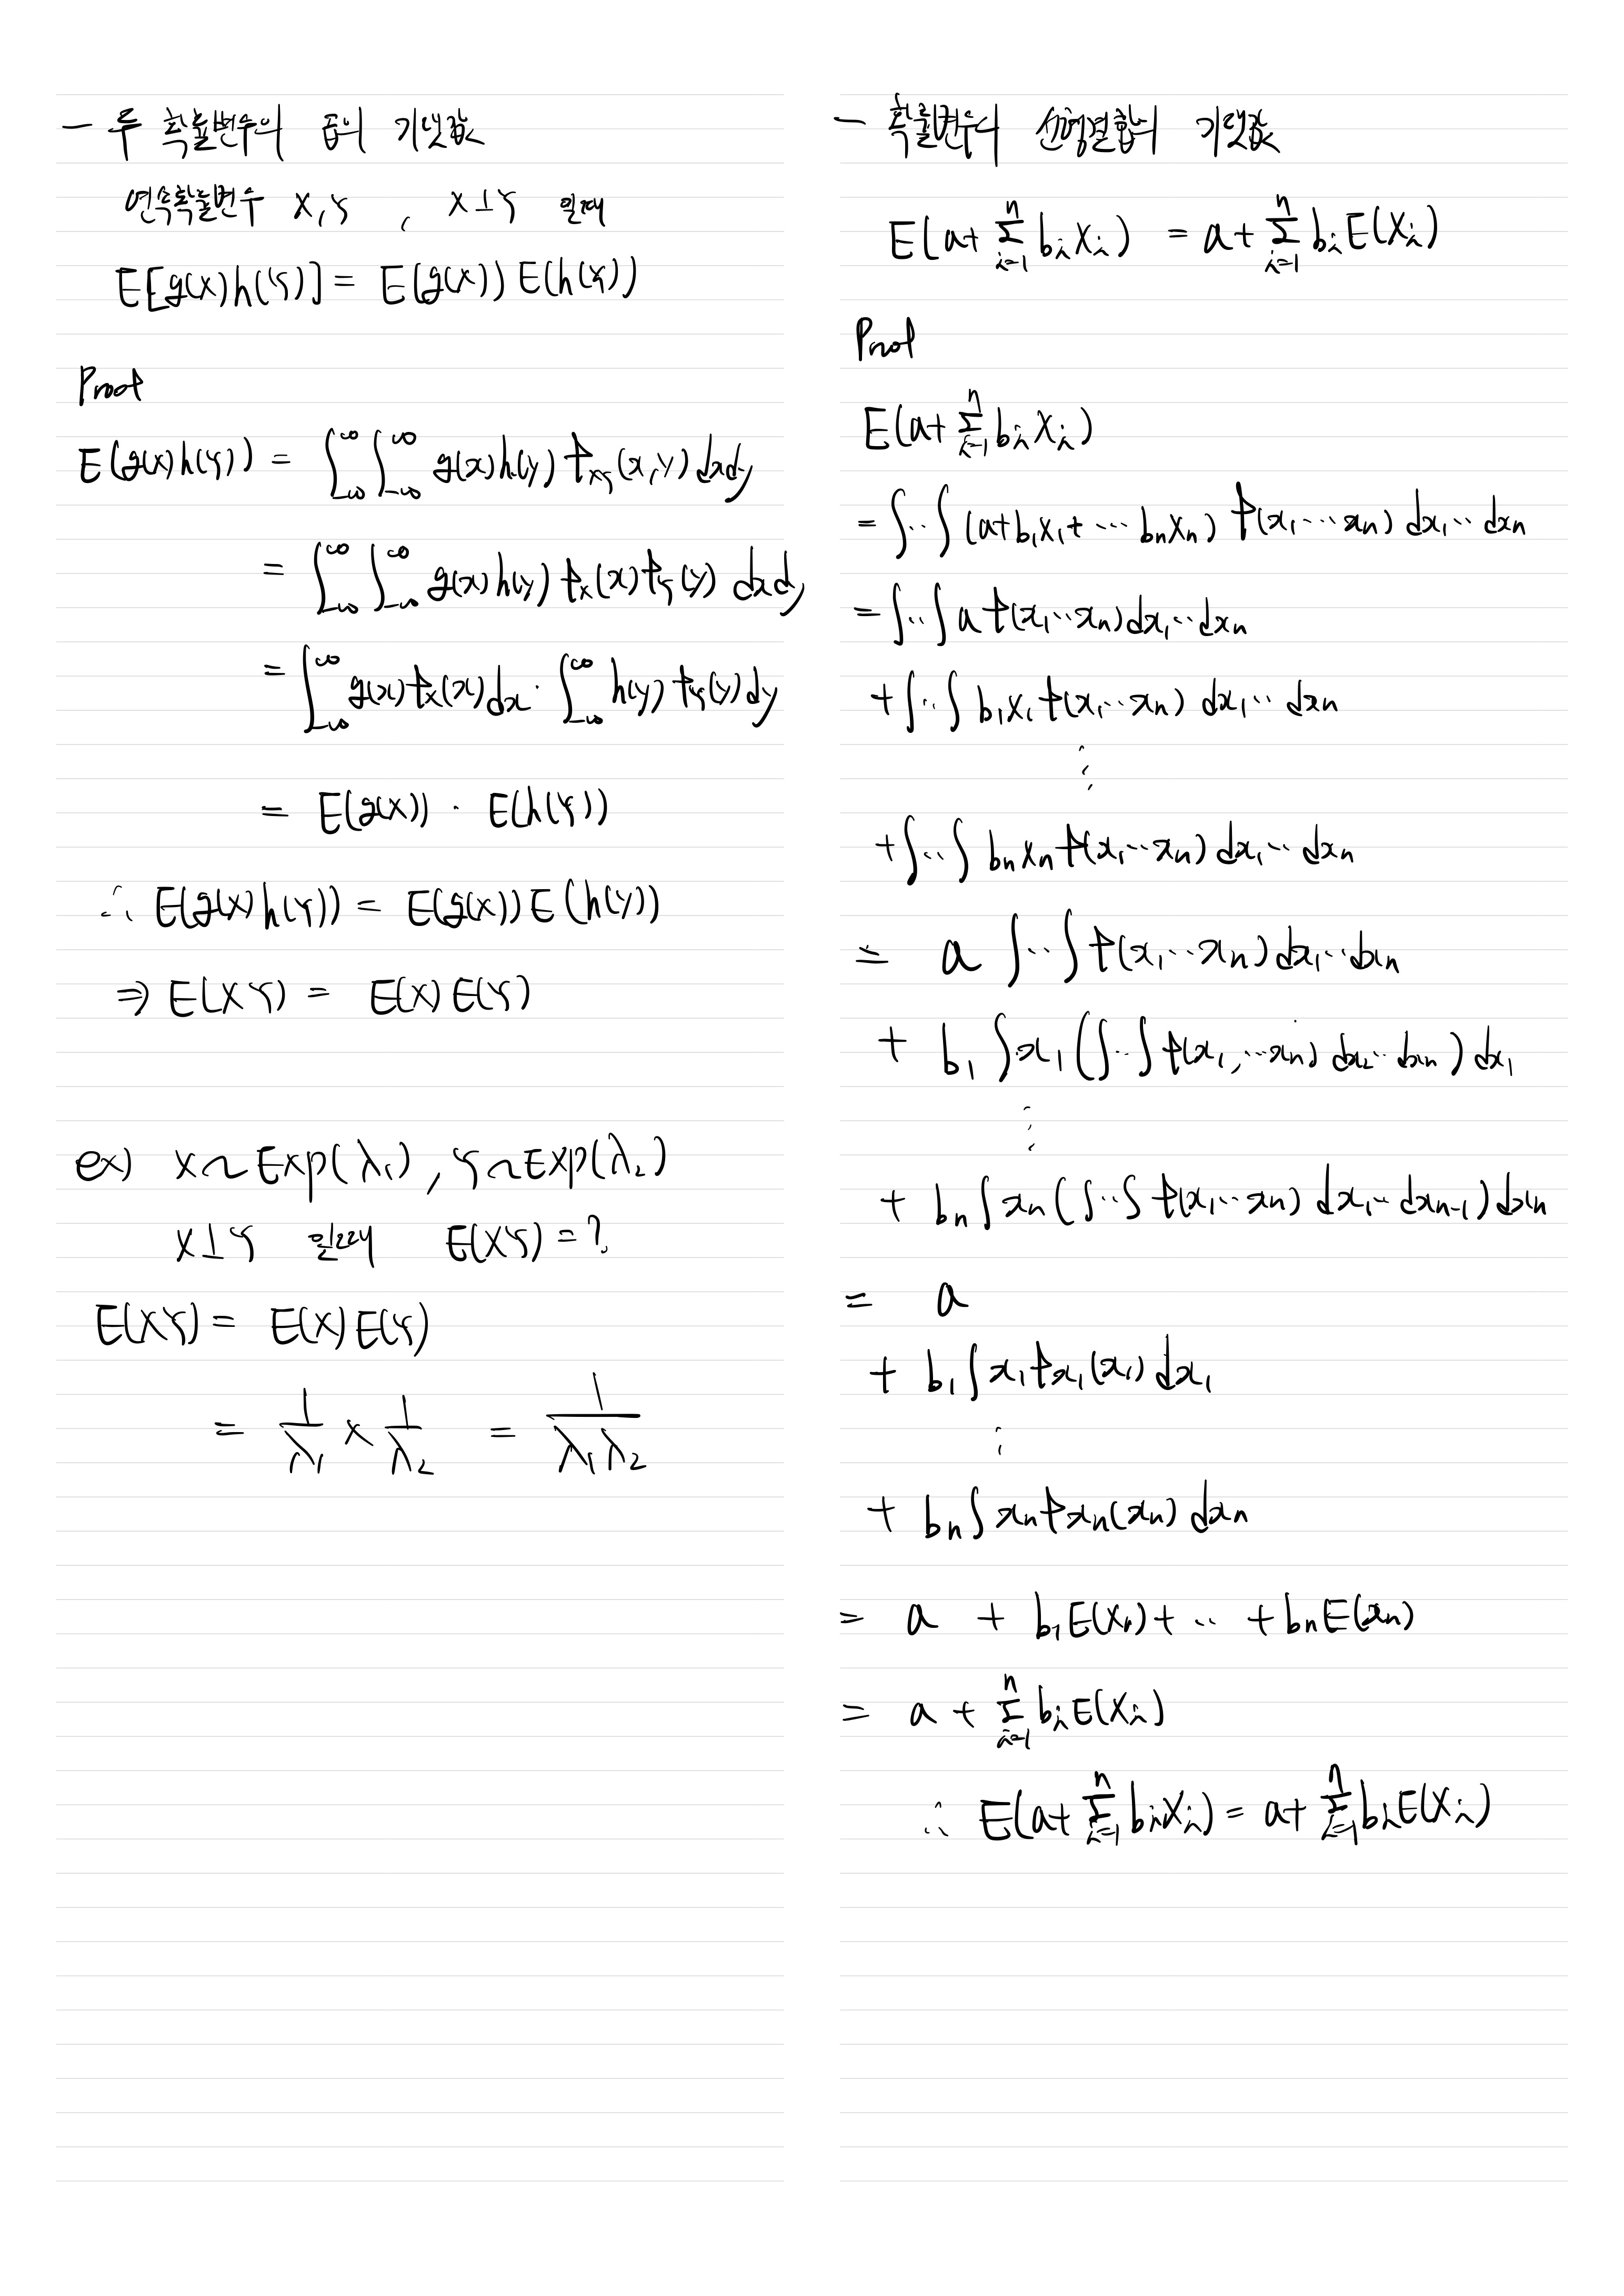 - 두 확률변수의 곱의 기댓값
연속확률변수 X, Y , X⊥Y 일때
E[g(X)h(Y)] = E(g(X)) E(h(Y))
Proof
E(g(X)h(Y)) = ∫_{-∞}^{∞} ∫_{-∞}^{∞} g(x)h(y) f_{XY}(x,y) dxdy
= ∫_{-∞}^{∞} ∫_{-∞}^{∞} g(x)h(y) f_X(x) f_Y(y) dxdy
= ∫_{-∞}^{∞} g(x) f_X(x) dx · ∫_{-∞}^{∞} h(y) f_Y(y) dy
= E(g(X)) · E(h(Y))
∴ E(g(X)h(Y)) = E(g(X)) E(h(Y))
⇒ E(XY) = E(X)E(Y)
ex) X~Exp(λ₁), Y~Exp(λ₂)
X⊥Y 일때 E(XY) = ?
E(XY) = E(X)E(Y)
= 1/λ₁ × 1/λ₂ = 1/(λ₁λ₂)
- 확률변수의 선형결합의 기댓값
E(a+Σ_{i=1}^{n} b_i X_i) = a+Σ_{i=1}^{n} b_i E(X_i)
Proof
E(a+Σ_{i=1}^{n} b_i X_i)
= ∫··∫ (a+b₁x₁+···b_n x_n) f(x₁···x_n) dx₁··dx_n
= ∫··∫ a f(x₁···x_n) dx₁··dx_n
+ ∫··∫ b₁x₁ f(x₁···x_n) dx₁··dx_n
⋮
+ ∫··∫ b_n x_n f(x₁···x_n) dx₁··dx_n
= a ∫··∫ f(x₁···x_n) dx₁··dx_n
+ b₁ ∫ x₁ (∫··∫ f(x₁,···x_n) dx₂··dx_n) dx₁
⋮
+ b_n ∫ x_n (∫··∫ f(x₁···x_n) dx₁··dx_{n-1}) dx_n
= a
+ b₁ ∫ x₁ f_{x₁}(x₁) dx₁
⋮
+ b_n ∫ x_n f_{x_n}(x_n) dx_n
= a + b₁E(X₁)+ ·· +b_nE(x_n)
= a + Σ_{i=1}^{n} b_i E(X_i)
∴ E(a+Σ_{i=1}^{n} b_i X_i) = a+Σ_{i=1}^{n} b_i E(X_i)